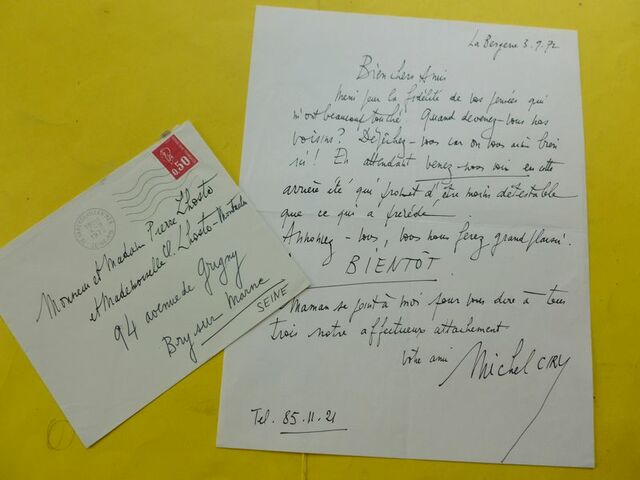 La Bergerie 3.9.72
Bien chers Amis
Merci pour la fidélité de vos pensées qui
m'ont beaucoup touché! Quand devenez-vous nos
voisins? Dépêchez-vous car on vous aime bien
ici! En attendant venez-nous voir en cette
arrière été qui promet d'être moins détestable
que ce qui a précédé.
Annoncez-vous, vous nous ferez grand plaisir.
BIENTÔT.
Maman se joint à moi pour vous dire à tous
trois notre affectueux attachement
votre ami Michel CIRY
Tel. 85.11.21
0.50
Monsieur et Madame Pierre Lhoste
et Mademoiselle Lhoste-
94 avenue de Grigny
Bry sur Marne
SEINE